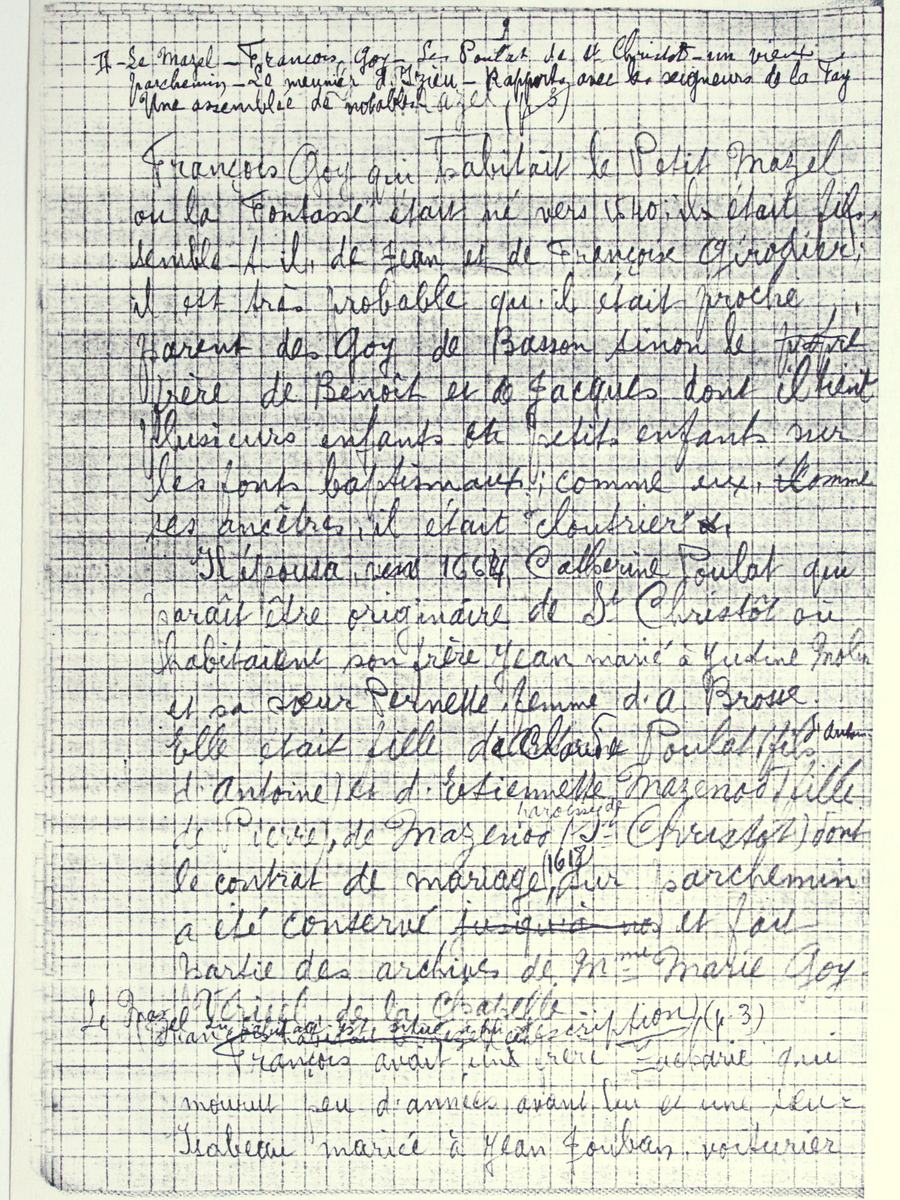 9
II - Le Mazel - François Goy - Les Poulat de St Christôt - un vieux
parchemin - Le meunier d'Izieu - Rapports avec les seigneurs de la Fay
Une assemblée de notables (p 3)
François Goy qui habitait le Petit Mazel
ou la Fontasse était né vers 1640; il était fils,
semble-t-il, de Jean et de Françoise Girodier;
il est très probable qu'il était proche
parent des Goy de Basson sinon le
frère de Benoît et de Jacques dont il tient
plusieurs enfants et petits enfants sur
les fonts baptismaux; comme eux, comme
ses ancêtres, il était "cloutrier".
Il épousa, vers 1664, Catherine Poulat qui
paraît être originaire de St Christôt où
habitaient son frère Jean marié à Molin
et sa sœur Pernette, femme d'A. Brosse.
Elle était fille de Claude Poulat (fils
d'Antoine) et d'Etiennette Mazenod (fille
de Pierre), de Mazenod (paroisse de St Christôt) dont
le contrat de mariage, (1618) sur parchemin
a été conservé jusqu'à nos et fait
partie des archives de Mme Marie Goy
de la Chapelle
Le Mazel (description) (p. 3)
François avait une frère Zacharie qui
mourut peu d'années avant lui et une sœur
Isabeau mariée à Jean Joubar, voiturier